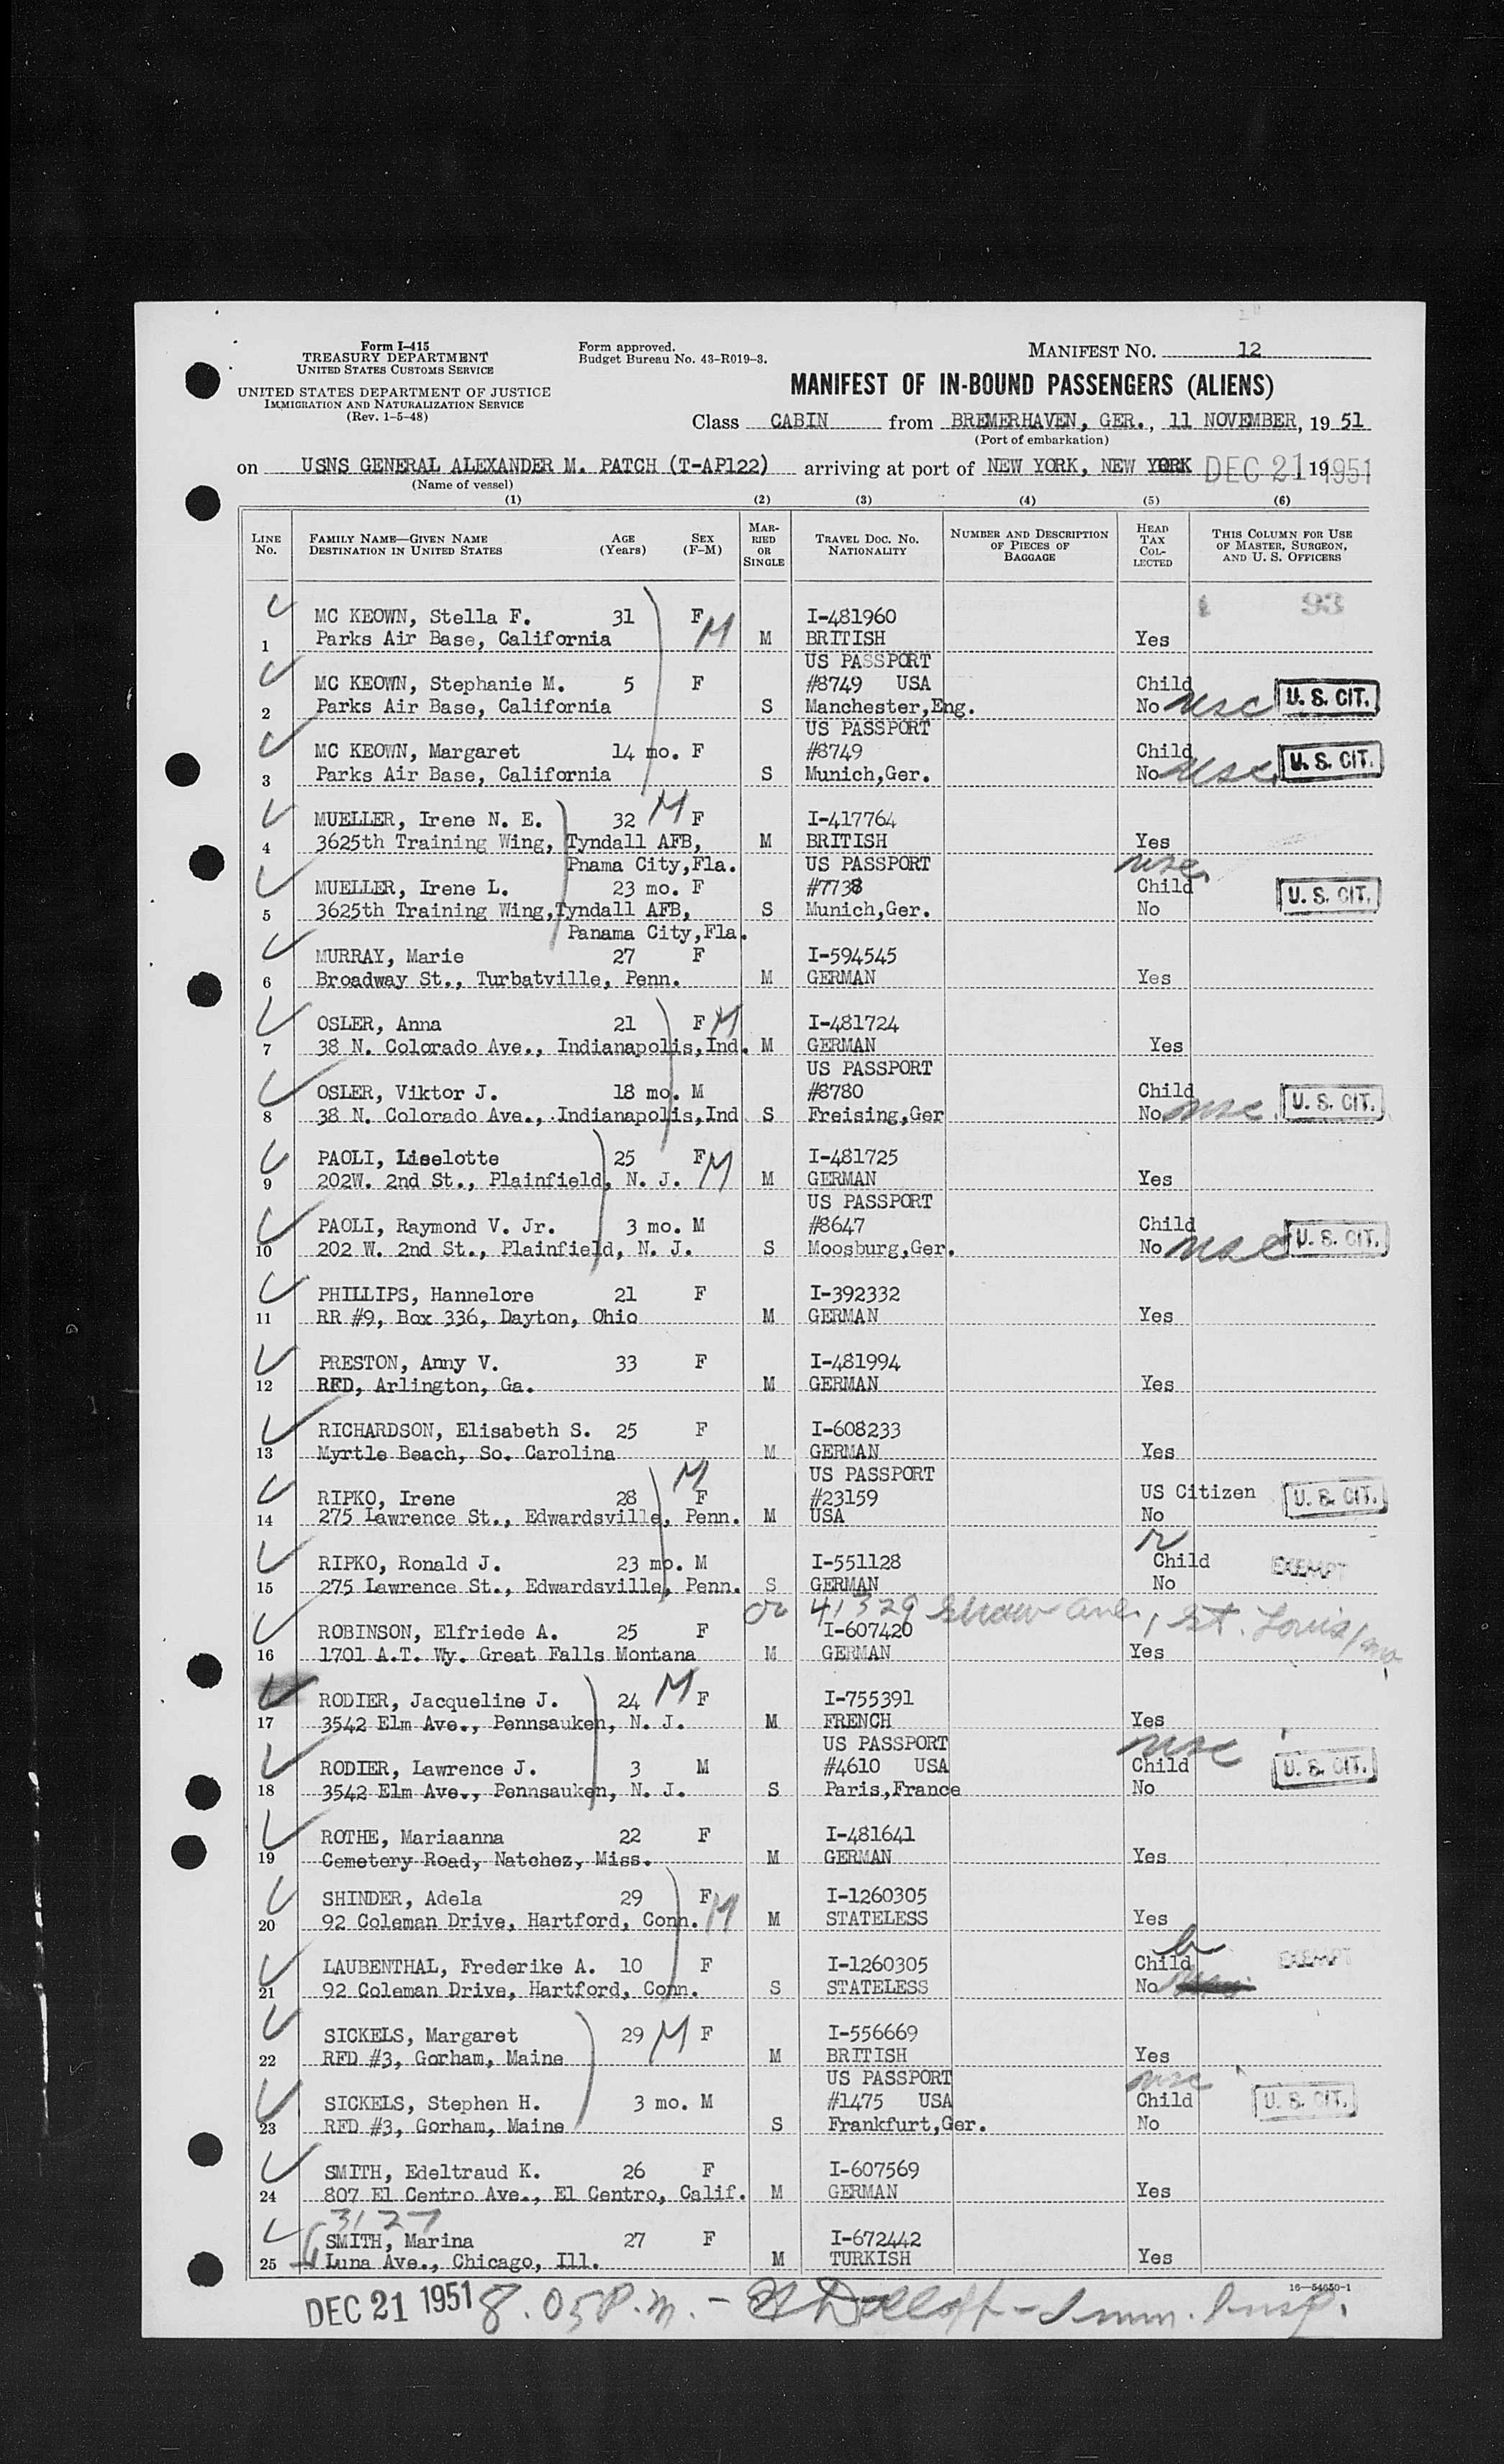 Form I-415
TREASURY DEPARTMENT
UNITED STATES CUSTOMS SERVICE
UNITED STATES DEPARTMENT OF JUSTICE
IMMIGRATION AND NATURALIZATION SERVICE
(Rev. 1-5-48)
Form approved.
Budget Bureau No. 43-R019-3.
MANIFEST NO. 12
MANIFEST OF IN-BOUND PASSENGERS (ALIENS)
Class CABIN from BREMERHAVEN, GER., 11 NOVEMBER, 19 51
(Port of embarkation)
on USNS GENERAL ALEXANDER M. PATCH (T-AP122) arriving at port of NEW YORK, NEW YORK DEC 21, 19 1951
(Name of vessel)
(1) (2) (3) (4) (5) (6)
LINE No. FAMILY NAME—GIVEN NAME DESTINATION IN UNITED STATES AGE (Years) SEX (F-M) MARRIED OR SINGLE TRAVEL DOC. NO. NATIONALITY NUMBER AND DESCRIPTION OF PIECES OF BAGGAGE HEAD TAX COLLECTED THIS COLUMN FOR USE OF MASTER, SURGEON, AND U. S. OFFICERS
MC KEOWN, Stella F. 31 F M I-481960 93
1 Parks Air Base, California M BRITISH Yes
US PASSPORT
MC KEOWN, Stephanie M. 5 F #8749 USA Child
2 Parks Air Base, California S Manchester,Eng. No usc U. S. CIT.
US PASSPORT
MC KEOWN, Margaret 14 mo. F #8749 Child
3 Parks Air Base, California S Munich,Ger. No usc U. S. CIT.
MUELLER, Irene N. E. 32 M F I-417764
4 3625th Training Wing, Tyndall AFB, M BRITISH Yes
Pnama City,Fla. US PASSPORT usc
MUELLER, Irene L. 23 mo. F #7738 Child
5 3625th Training Wing,Tyndall AFB, S Munich,Ger. No U. S. CIT.
Panama City,Fla.
MURRAY, Marie 27 F I-594545
6 Broadway St., Turbatville, Penn. M GERMAN Yes
OSLER, Anna 21 F M I-481724
7 38 N. Colorado Ave., Indianapolis,Ind. M GERMAN Yes
US PASSPORT
OSLER, Viktor J. 18 mo. M #8780 Child
8 38 N. Colorado Ave., Indianapolis,Ind S Freising,Ger No usc U. S. CIT.
PAOLI, Liselotte 25 F M I-481725
9 202W. 2nd St., Plainfield, N. J. M GERMAN Yes
US PASSPORT
PAOLI, Raymond V. Jr. 3 mo. M #8647 Child
10 202 W. 2nd St., Plainfield, N. J. S Moosburg,Ger. No usc U. S. CIT.
PHILLIPS, Hannelore 21 F I-392332
11 RR #9, Box 336, Dayton, Ohio M GERMAN Yes
PRESTON, Anny V. 33 F I-481994
12 RFD, Arlington, Ga. M GERMAN Yes
RICHARDSON, Elisabeth S. 25 F I-608233
13 Myrtle Beach, So. Carolina M GERMAN Yes
M US PASSPORT
RIPKO, Irene 28 F #23159 US Citizen U. S. CIT.
14 275 Lawrence St., Edwardsville, Penn. M USA No
RIPKO, Ronald J. 23 mo. M I-551128 Child EXEMPT
15 275 Lawrence St., Edwardsville, Penn. S GERMAN No
or 41329 Shaw Ave., St. Louis, Mo
ROBINSON, Elfriede A. 25 F I-607420
16 1701 A.T. Wy. Great Falls Montana M GERMAN Yes
RODIER, Jacqueline J. 24 M F I-755391
17 3542 Elm Ave., Pennsauken, N. J. M FRENCH Yes
US PASSPORT usc
RODIER, Lawrence J. 3 M #4610 USA Child U. S. CIT.
18 3542 Elm Ave., Pennsauken, N. J. S Paris,France No
ROTHE, Mariaanna 22 F I-481641
19 Cemetery Road, Natchez, Miss. M GERMAN Yes
SHINDER, Adela 29 F M I-1260305
20 92 Coleman Drive, Hartford, Conn. M STATELESS Yes
LAUBENTHAL, Frederike A. 10 F I-1260305 Child EXEMPT
21 92 Coleman Drive, Hartford, Conn. S STATELESS No
SICKELS, Margaret 29 M F I-556669
22 RFD #3, Gorham, Maine M BRITISH Yes
US PASSPORT usc
SICKELS, Stephen H. 3 mo. M #1475 USA Child U. S. CIT.
23 RFD #3, Gorham, Maine S Frankfurt,Ger. No
SMITH, Edeltraud K. 26 F I-607569
24 807 El Centro Ave., El Centro, Calif. M GERMAN Yes
3127
SMITH, Marina 27 F I-672442
25 Luna Ave., Chicago, Ill. M TURKISH Yes
16—54650-1
DEC 21 1951 8.05 P.m. - Imm. Insp.